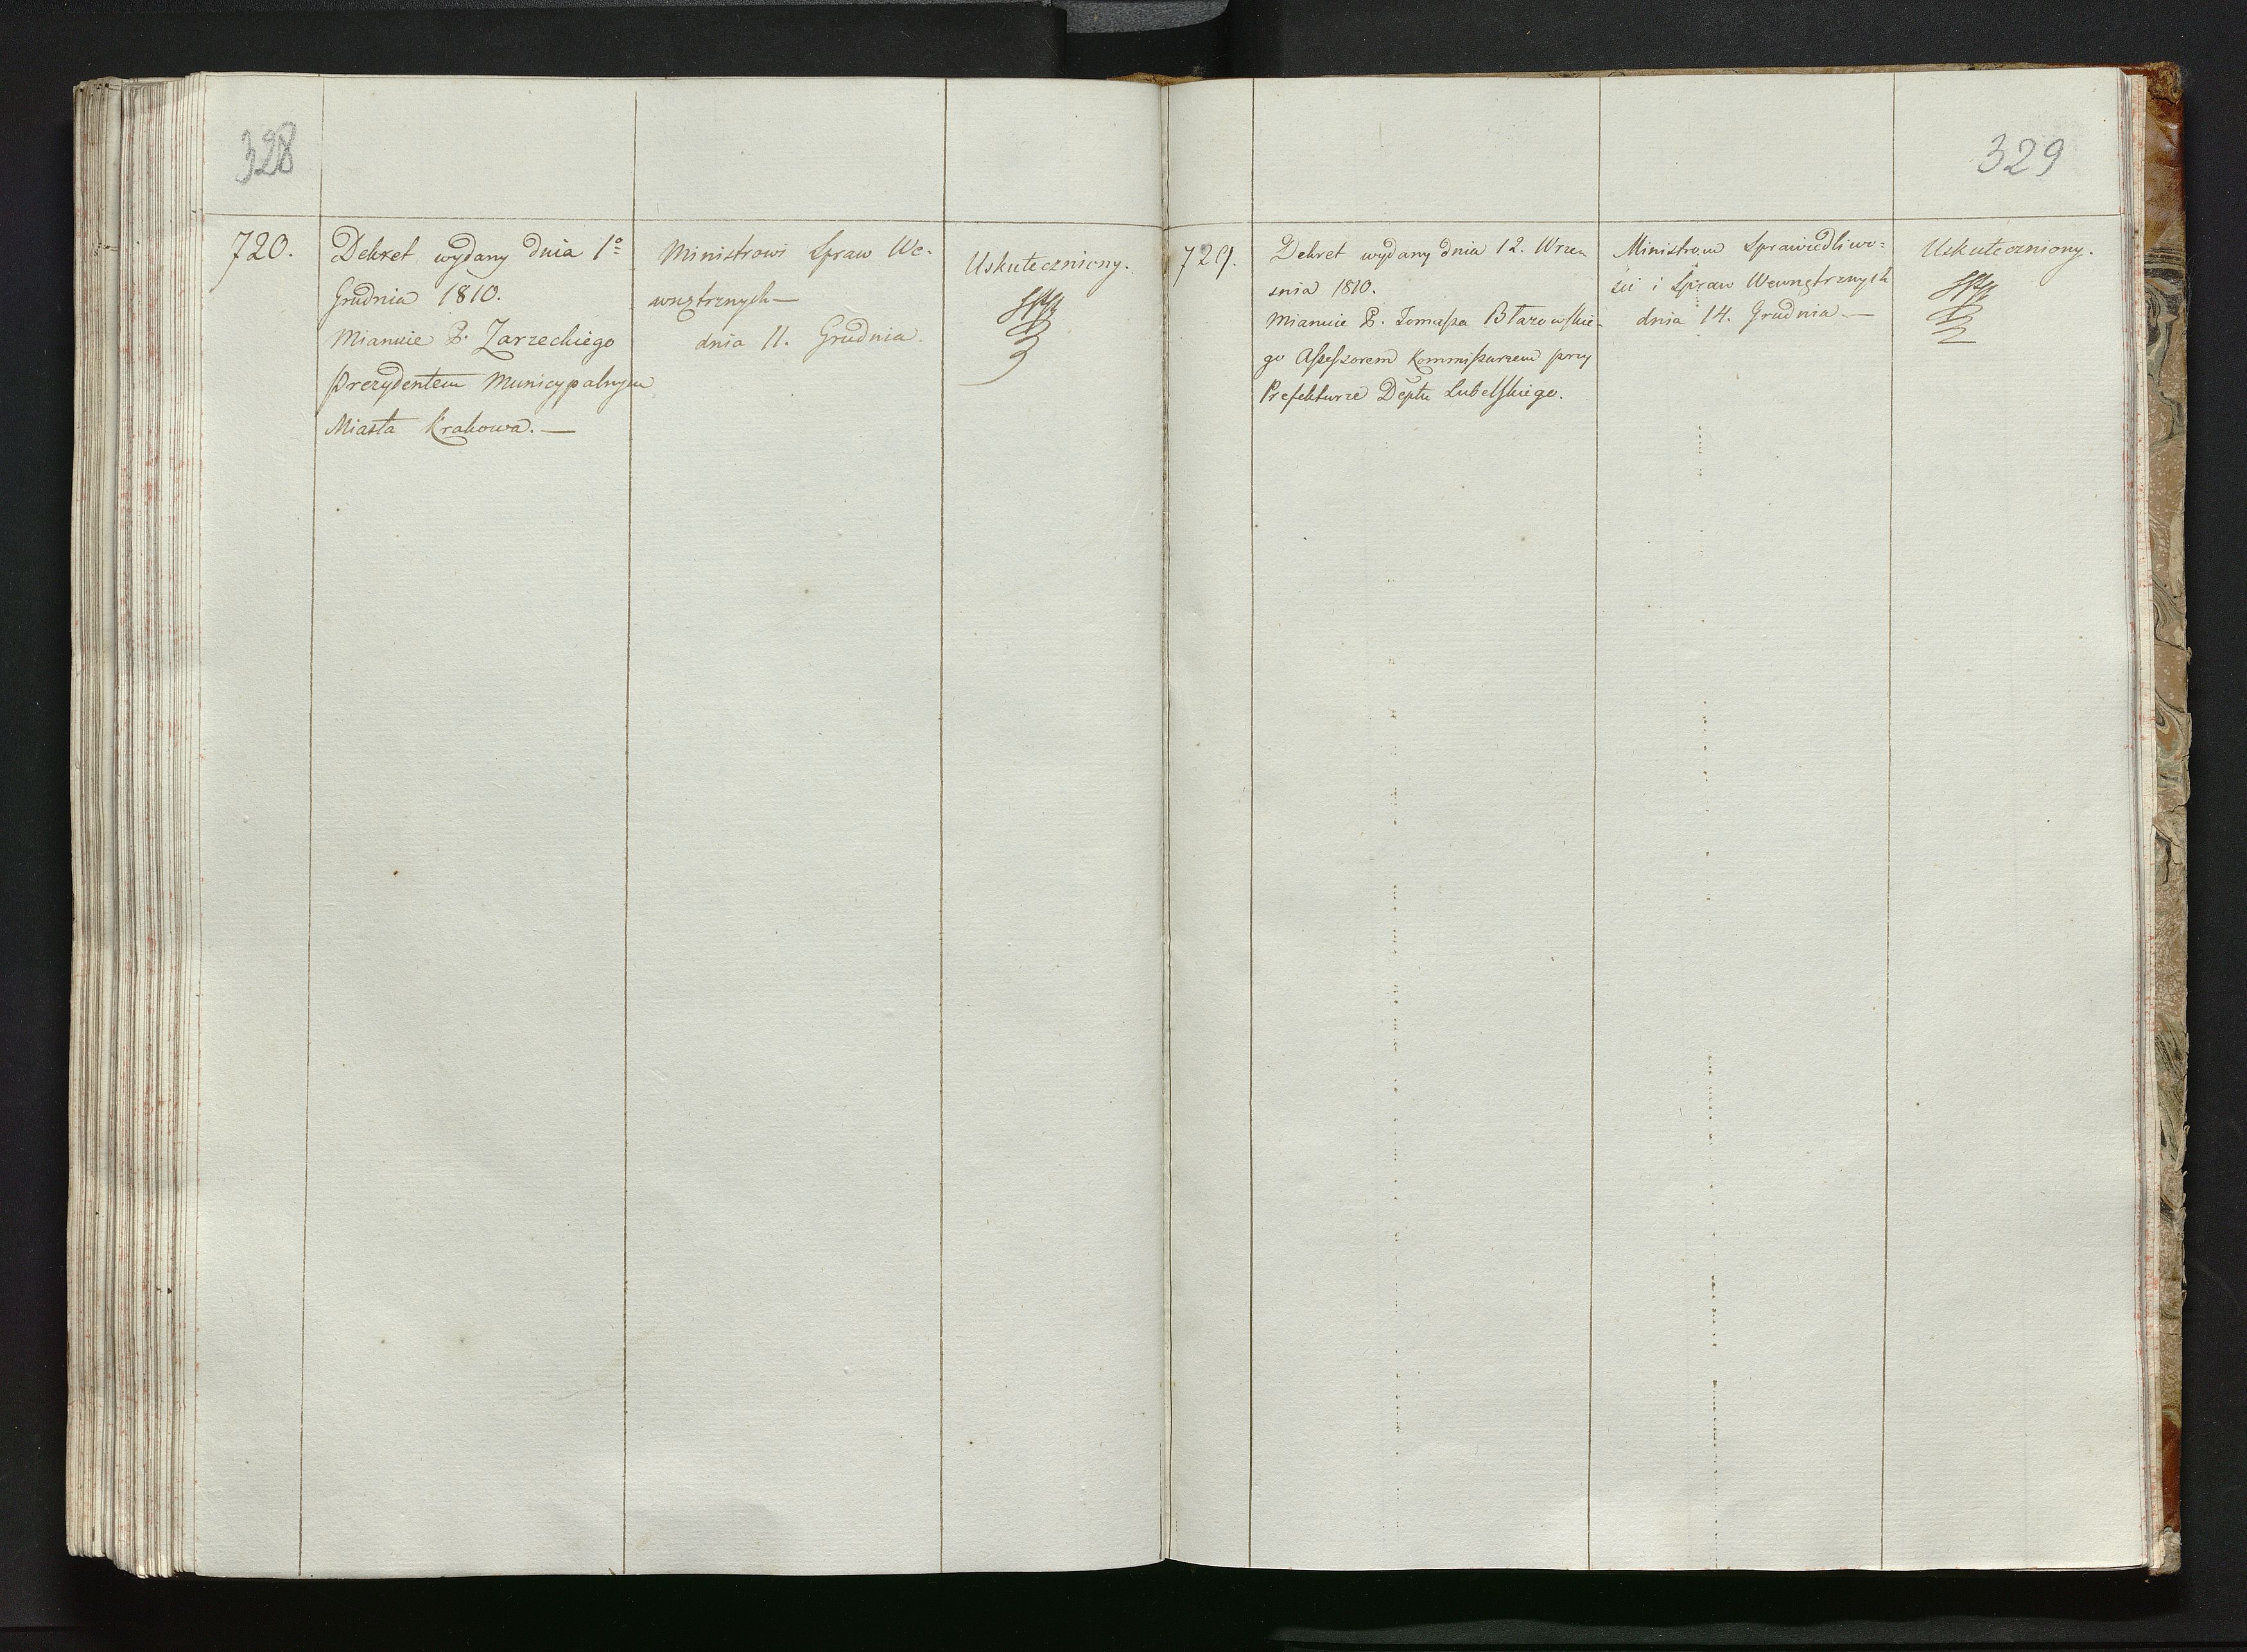 328
720.
Dekret wydany dnia 1º
Grudnia 1810.
Mianuie P. Zarzeckiego
Prezydentem Municypalnym
Miasta Krakowa. —
Ministrowi Spraw We-
wnętrznych —
dnia 11. Grudnia.
Uskuteczniony.
329
721.
Dekret wydany dnia 12. Wrze-
snia 1810.
Mianuie P. Tomasza Błazowskie-
go Assessorem Kommissarzem przy
Prefekturze Deptu Lubelskiego.
Ministrom Sprawiedliwo=
sci i Spraw Wewnętrznych
dnia 14. Grudnia —
Uskuteczniony.